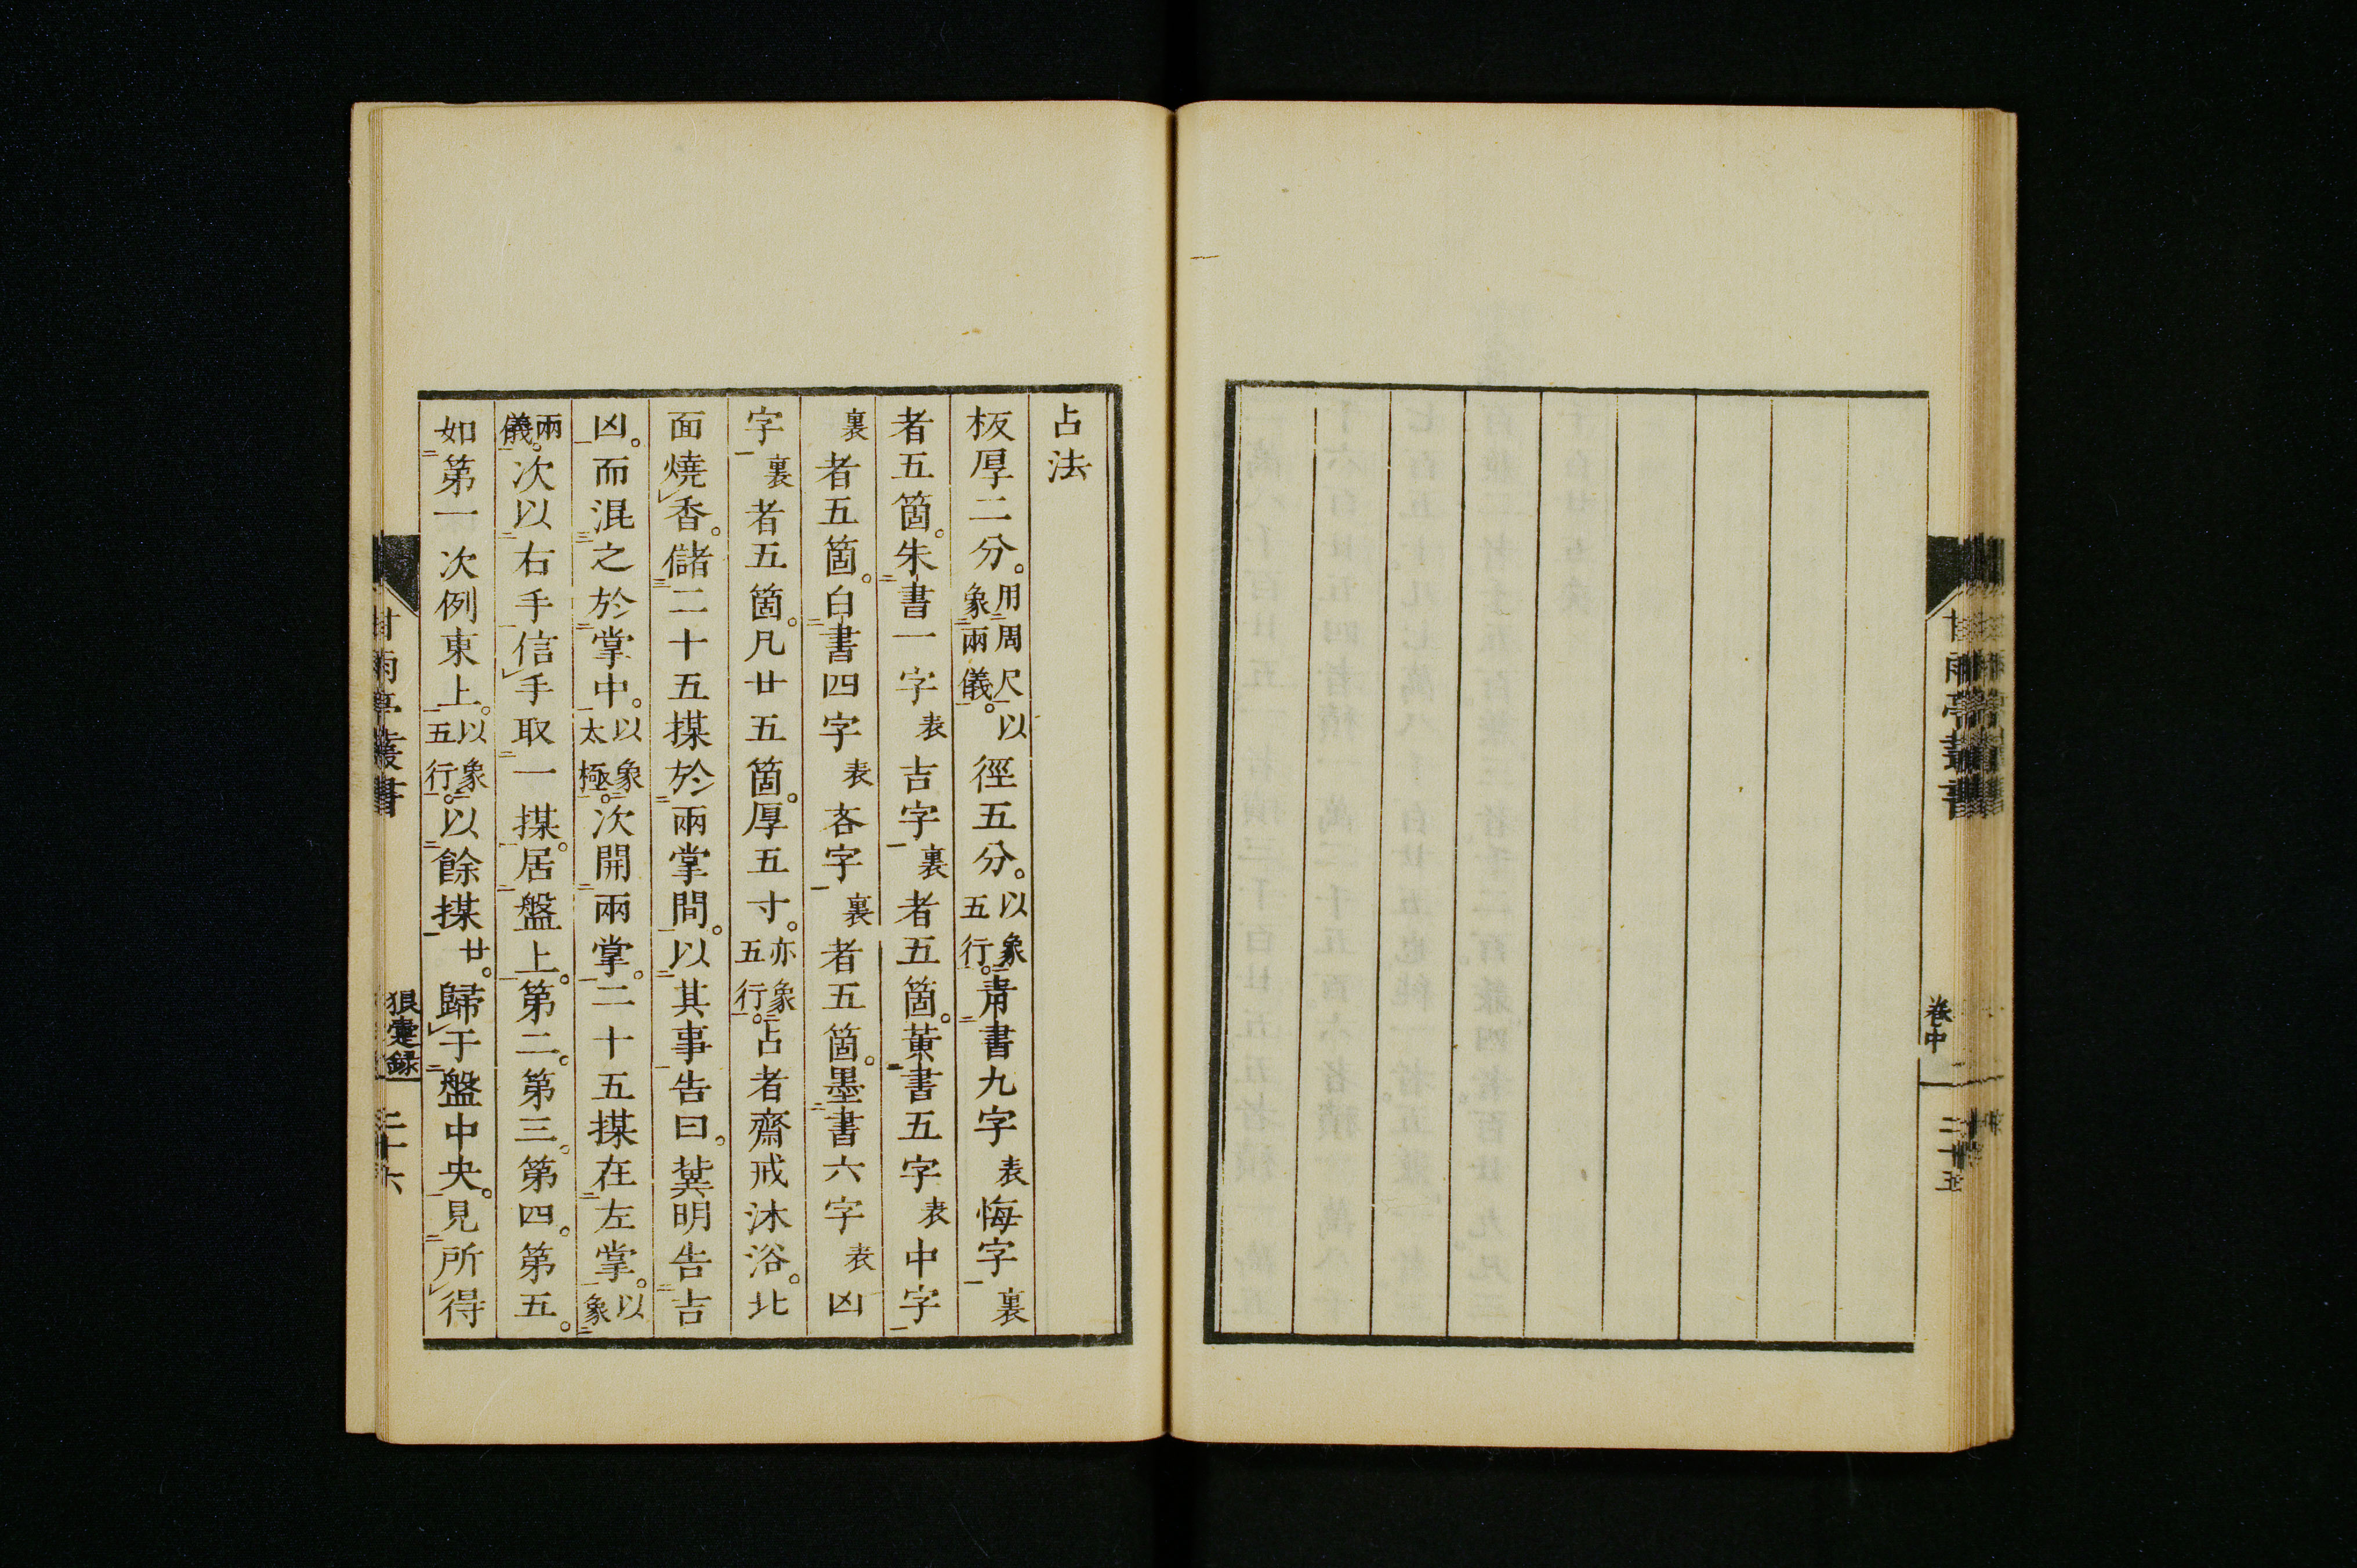 甘雨亭叢書
卷中
二十五
占法
板厚二分。用周尺象兩儀。以徑五分。以象五行。靑書九字表悔字裏
者五箇。朱書一字表吉字裏者五箇。黃書五字表中字
裏者五箇。白書四字表吝字裏者五箇。墨書六字表凶
字裏者五箇。凡廿五箇。厚五寸。亦象五行。占者齋戒沐浴。北
面燒香。儲二十五揲於兩掌間。以其事告曰。冀明告吉
凶。而混之於掌中。以象太極。次開兩掌。二十五揲在左掌。以象
兩儀。次以右手信手取一揲。居盤上。第二。第三。第四。第五。
如第一次例東上。以象五行。以餘揲廿。歸于盤中央。見所得
甘雨亭叢書
狼疐録
二十六